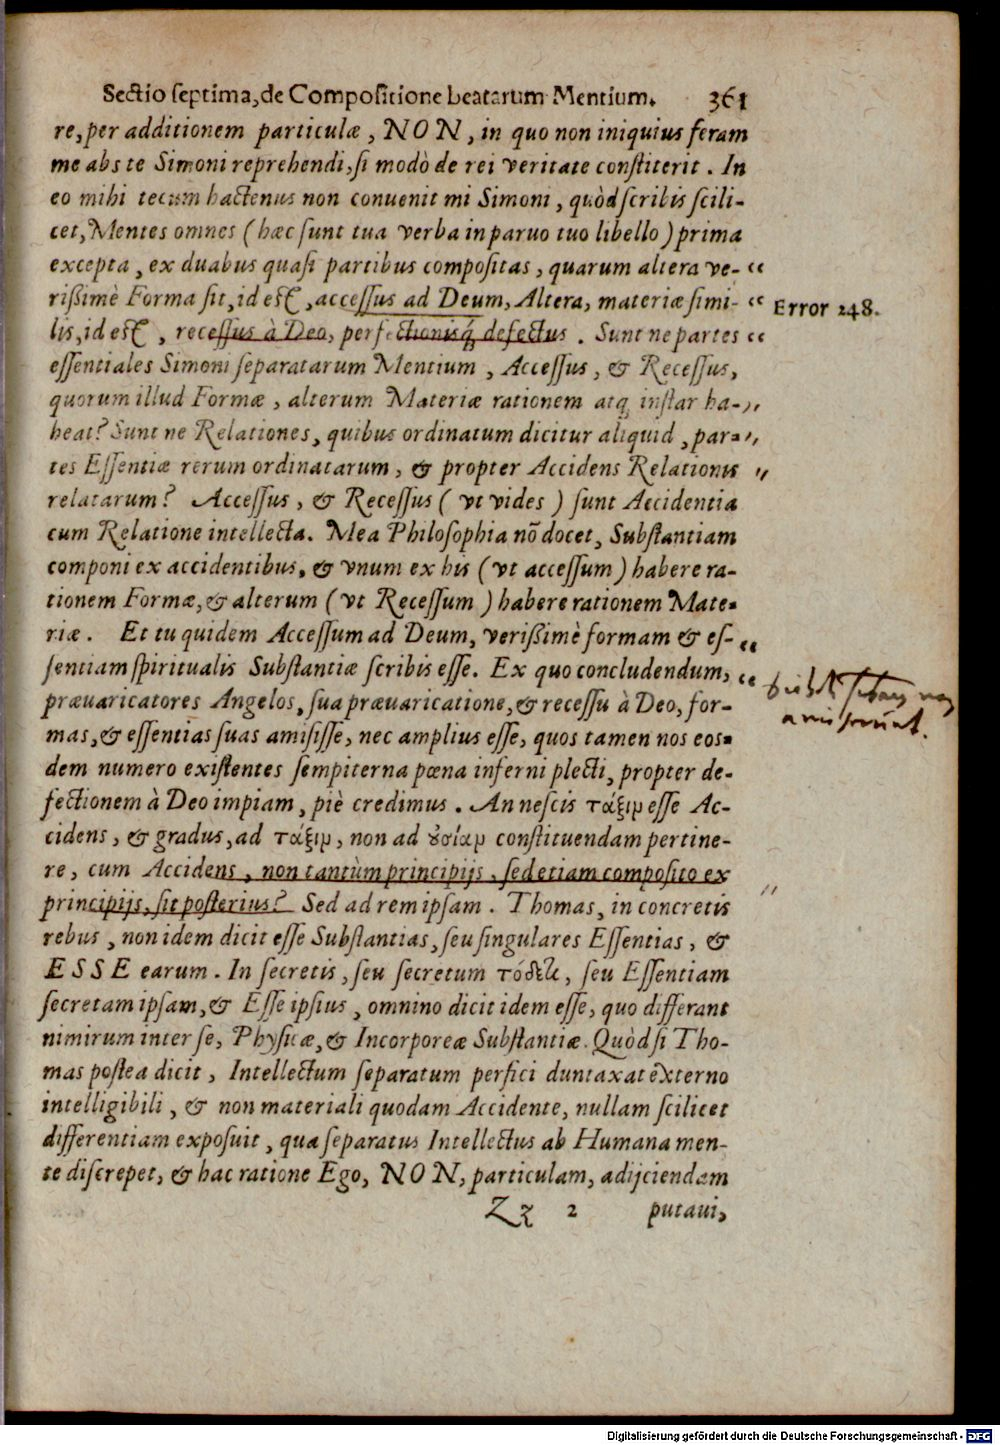 Sectio septima, de Compositione beatarum Mentium. 361
re, per additionem particulæ, NON, in quo non iniquius feram
me abs te Simoni reprehendi, si modò de rei veritate constiterit. In
eo mihi tecum hactenus non conuenit mi Simoni, quòd scribis scili-
cet, Mentes omnes (hæc sunt tua verba in paruo tuo libello) prima
excepta, ex duabus quasi partibus compositas, quarum altera ve- “
rißimè Forma sit, id est, accessus ad Deum, Altera, materiæ simi- “ Error 248.
lis, id est, recessus à Deo, perfectionisq́; defectus. Sunt ne partes “
essentiales Simoni separatarum Mentium, Accessus, & Recessus,
quorum illud Formæ, alterum Materiæ rationem atq; instar ha- „
beat? Sunt ne Relationes, quibus ordinatum dicitur aliquid, par- „
tes Essentiæ rerum ordinatarum, & propter Accidens Relationis „
relatarum? Accessus, & Recessus (vt vides) sunt Accidentia
cum Relatione intellecta. Mea Philosophia nō docet, Substantiam
componi ex accidentibus, & vnum ex his (vt accessum) habere ra-
tionem Formæ, & alterum (vt Recessum) habere rationem Mate-
riæ. Et tu quidem Accessum ad Deum, verißimè formam & es- “
sentiam spiritualis Substantiæ scribis esse. Ex quo concludendum, “
præuaricatores Angelos, sua præuaricatione, & recessu à Deo, for-
mas, & essentias suas amisisse, nec amplius esse, quos tamen nos eos-
dem numero existentes sempiterna pœna inferni plecti, propter de-
fectionem à Deo impiam, piè credimus. An nescis τάξιμ esse Ac-
cidens, & gradus, ad τάξιμ, non ad ȣσίαμ constituendam pertine-
re, cum Accidens, non tantùm principijs, sed etiam composito ex
principijs, sit posterius? Sed ad rem ipsam. Thomas, in concretis „
rebus, non idem dicit esse Substantias, seu singulares Essentias, &
ESSE earum. In secretis, seu secretum τόδε, seu Essentiam
secretam ipsam, & Esse ipsius, omnino dicit idem esse, quo differant
nimirum inter se, Physicæ, & Incorporeæ Substantiæ. Quòd si Tho-
mas postea dicit, Intellectum separatum perfici duntaxat externo
intelligibili, & non materiali quodam Accidente, nullam scilicet
differentiam exposuit, qua separatus Intellectus ab Humana men-
te discrepet, & hac ratione Ego, NON, particulam, adijciendam
Zz 2 putaui,
Digitalisierung gefördert durch die Deutsche Forschungsgemeinschaft - DFG